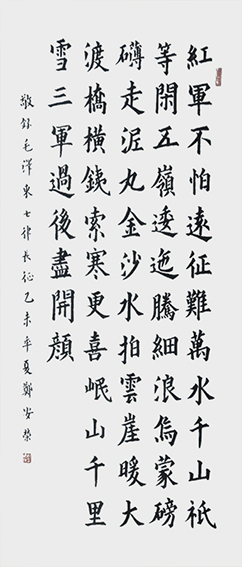 紅軍不怕遠征難萬水千山祇
等閑五嶺逶迤騰細浪烏蒙磅
礴走泥丸金沙水拍雲崖暖大
渡橋橫銕索寒更喜岷山千里
雪三軍過後盡開顏
敬錄毛澤東七律長征乙未年夏鄭安榮